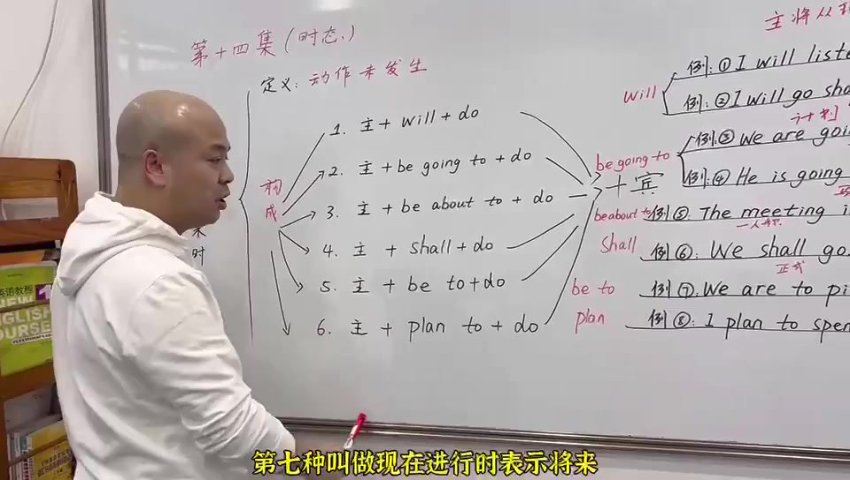 第十四集(时态.)
主将从现
定义: 动作未发生
构成
1. 主 + will + do
2. 主 + be going to + do
3. 主 + be about to + do
4. 主 + shall + do
5. 主 + be to + do
6. 主 + plan to + do
+ 宾
时
will
例: ① I will liste
例: ② I will go sho
计划
be going to
例: ③ we are goin
例: ④ He is going
be about to
例 ⑤: The meeting i
Shall
例 ⑥: We shall go
正式
be to
例 ⑦: We are to pi
plan
例 ⑧: I plan to spen
英语教程
NEW
ENGLISH
COURSE
第七种叫做现在进行时表示将来